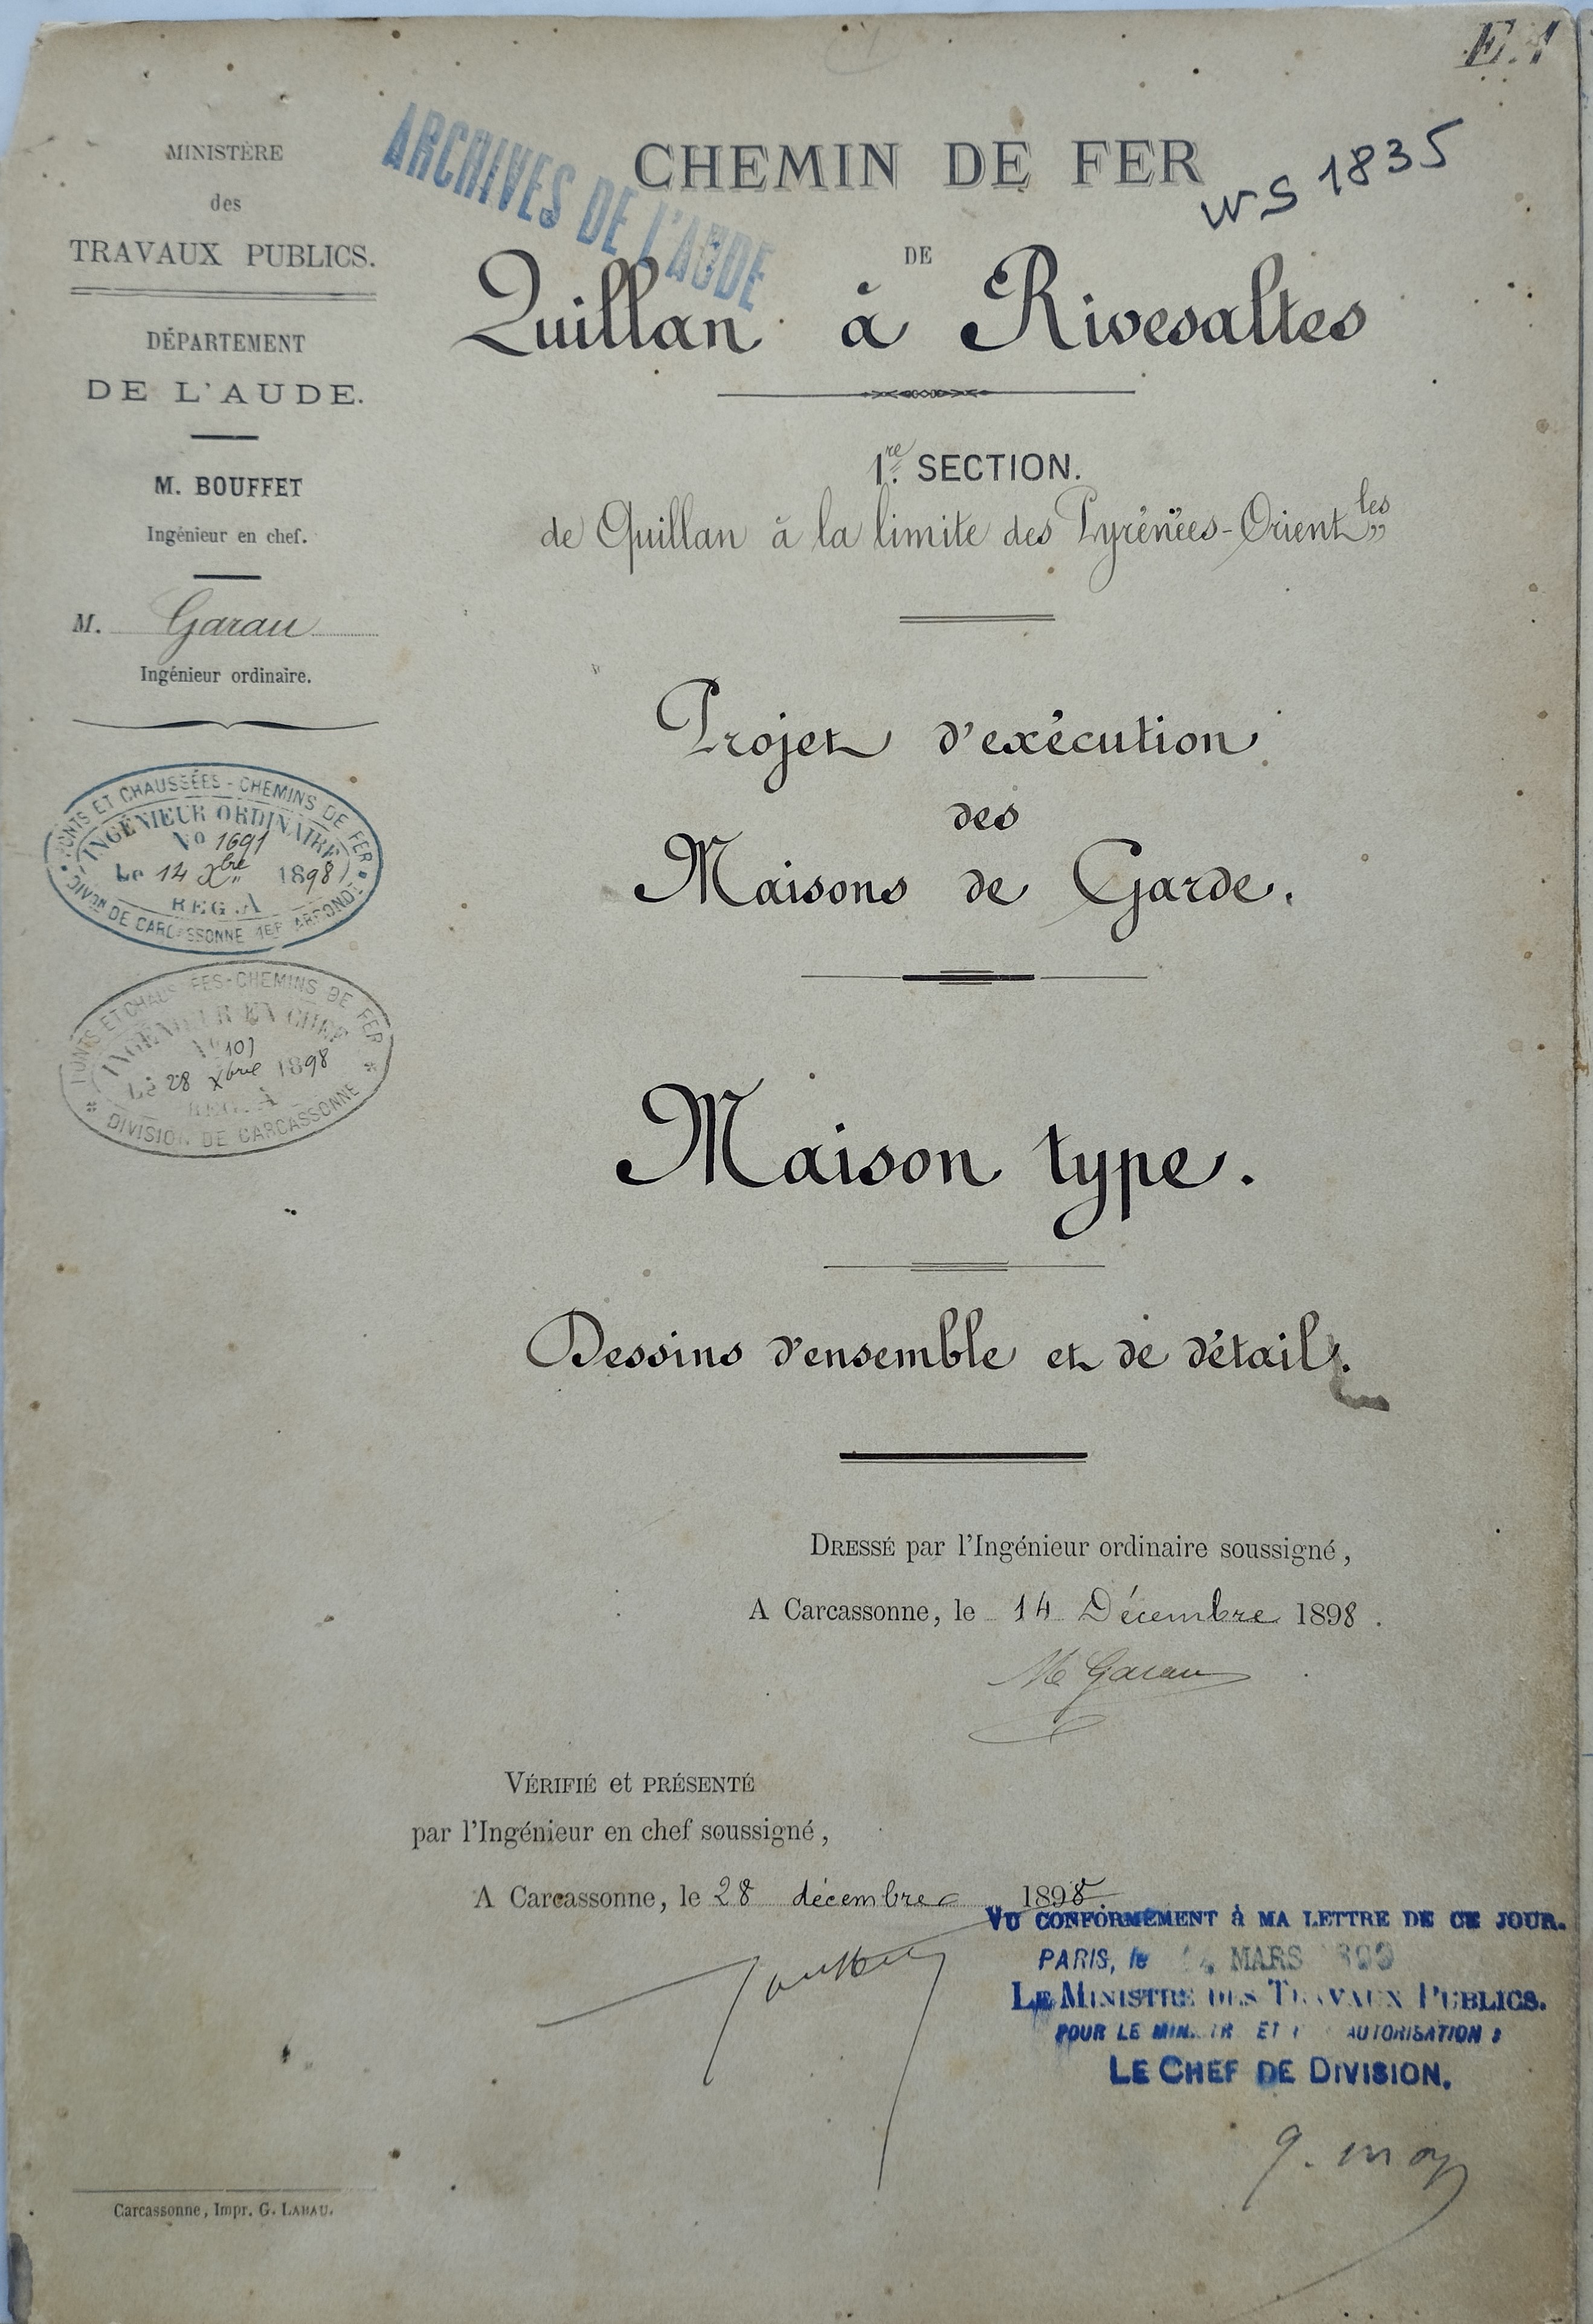 E.1
MINISTÈRE
des
TRAVAUX PUBLICS.
DÉPARTEMENT
DE L'AUDE.
M. BOUFFET
Ingénieur en chef.
M. Garau
Ingénieur ordinaire.
PONTS ET CHAUSSÉES - CHEMINS DE FER
INGÉNIEUR ORDINAIRE
No 1691
Le 14 Xbre 1898
REG. A
DIVON DE CARCASSONNE 1ER ARRONDT
PONTS ET CHAUSSÉES - CHEMINS DE FER
INGÉNIEUR EN CHEF
Le 28 Xbre 1898
REG. A
DIVISION DE CARCASSONNE
ARCHIVES DE L'AUDE
CHEMIN DE FER
WS 1835
DE
Quillan à Rivesaltes
1re SECTION.
de Quillan à la limite des Pyrénées-Orientles
Projet d'exécution
des
Maisons de Garde.
Maison type.
Dessins d'ensemble et de détail.
DRESSÉ par l'Ingénieur ordinaire soussigné,
A Carcassonne, le 14 Décembre 1898.
M Garau
VÉRIFIÉ et PRÉSENTÉ
par l'Ingénieur en chef soussigné,
A Carcassonne, le 28 décembre 1898
VU CONFORMÉMENT à MA LETTRE DE CE JOUR.
PARIS, le MARS 1899
LE MINISTRE DES TRAVAUX PUBLICS.
POUR LE MINISTRE ET PAR AUTORISATION :
LE CHEF DE DIVISION.
Carcassonne, Impr. G. LABAU.